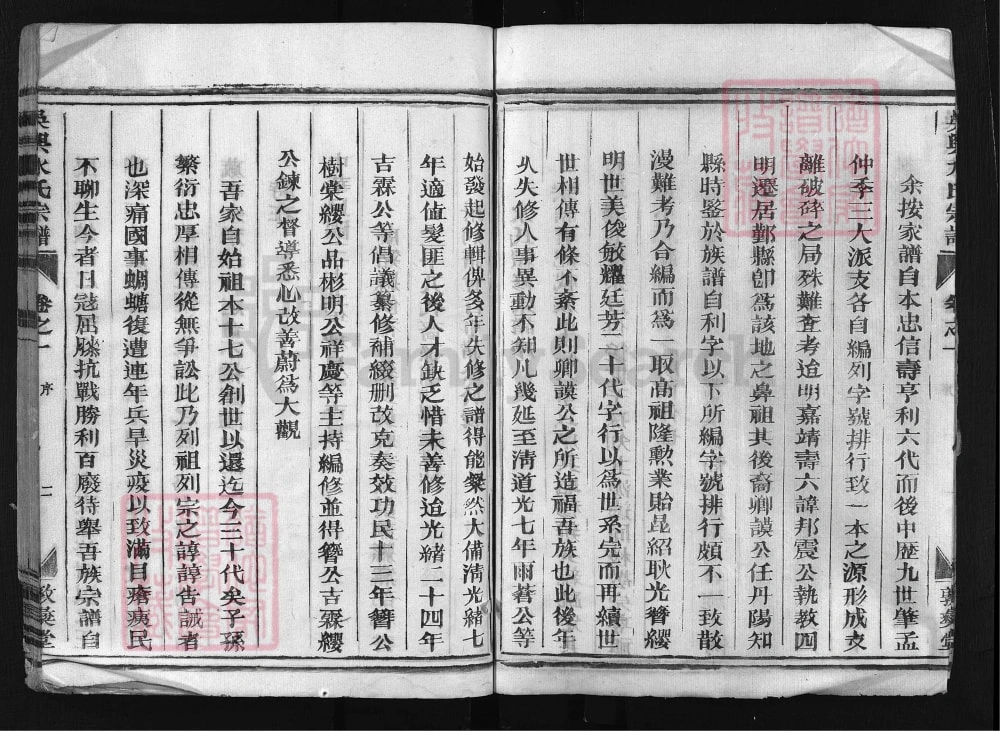 余按家譜自本忠信壽亨利六代而後中歷九世肇孟
仲季三大派支各自編列字號排行致一本之源形成支
離破碎之局殊難查考迨明嘉靖壽六諱邦震公執教四
明遷居鄞縣卽為該地之鼻祖其後裔卿謨公任丹陽知
縣時鍳於族譜自利字以下所編字號排行頗不一致散
漫難考乃合編而為一取高祖隆勳業貽昆紹耿光簪
明世美俊敏耀廷芳二十代字行以為世系完而再續世
世相傳有條不紊此則卿謨公之所造福吾族也此後年
久失修人事異動不知凡幾延至淸道光七年雨蒼公等
始發起修輯俾多年失修之譜得能燦然大備淸光緒七
年適値髮匪之後人才缺乏惜未善修迨光緒二十四年
吉霖公等倡議纂修補綴刪改克奏效功民十三年簪公
樹棠纓公品彬明公祥慶等主持編修並得簪公吉霖纓
公鍊之督導悉心改善蔚為大觀
吾家自始祖本十七公創世以還迄今三十代矣子孫
繁衍忠厚相傳從無爭訟此乃列祖列宗之諄諄告誡者
也深痛國事蜩螗復遭連年兵旱災疫以致滿目瘡痍民
不聊生今者日寇屈膝抗戰勝利百廢待舉吾族宗譜自
吳興水氏宗譜 卷之一 序 二 敦彝堂